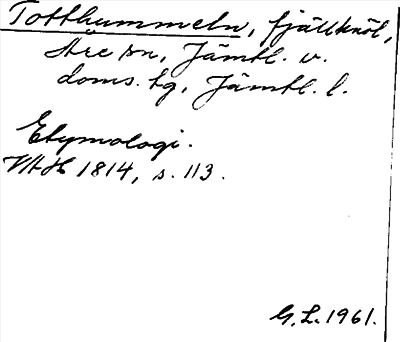 Totthummeln, fjällknöl,
Åre sn, Jämtl. v.
doms. tg, Jämtl. l.
Etymologi.
1814, s. 113.
G. L. 1961.